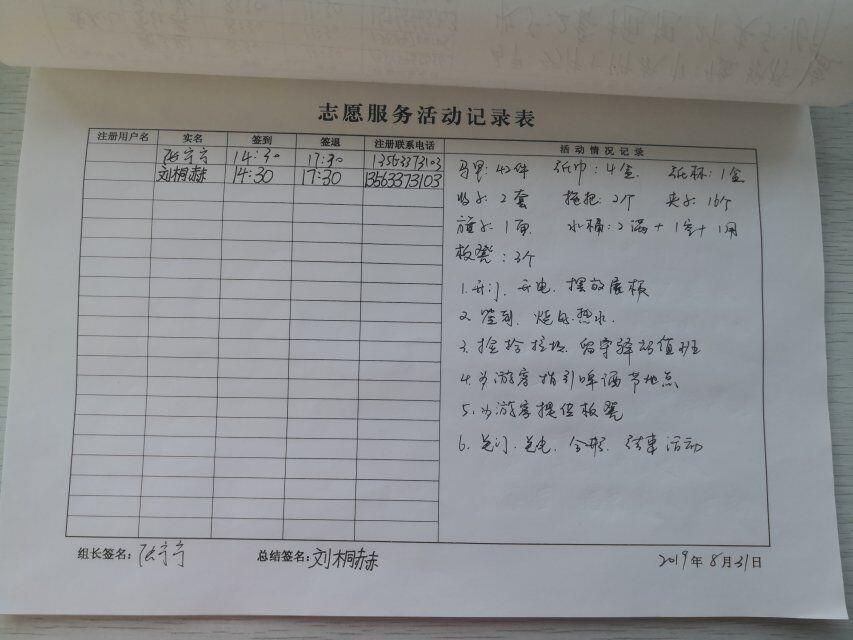 志愿服务活动记录表
注册用户名 实名 签到 签退 注册联系电话 活动情况记录
张宁宁 14:30 17:30 13563373103
刘桐赫 14:30 17:30 13563373103
马甲:42件 纸巾:4盒 纸杯:1盒
2套 拖把:2个 夹子:16个
旗子:1面 水桶:2满+1空+1用
板凳:3个
1.开门、开电、摆放展板
2.签到、烧热水.
3.捡拾垃圾、留守驿站值班
4.为游客指引啤酒节地点
5.为游客提供板凳
6.关门、关电、合影、结束活动
组长签名:张宁宁 总结签名:刘桐赫 2019年8月31日